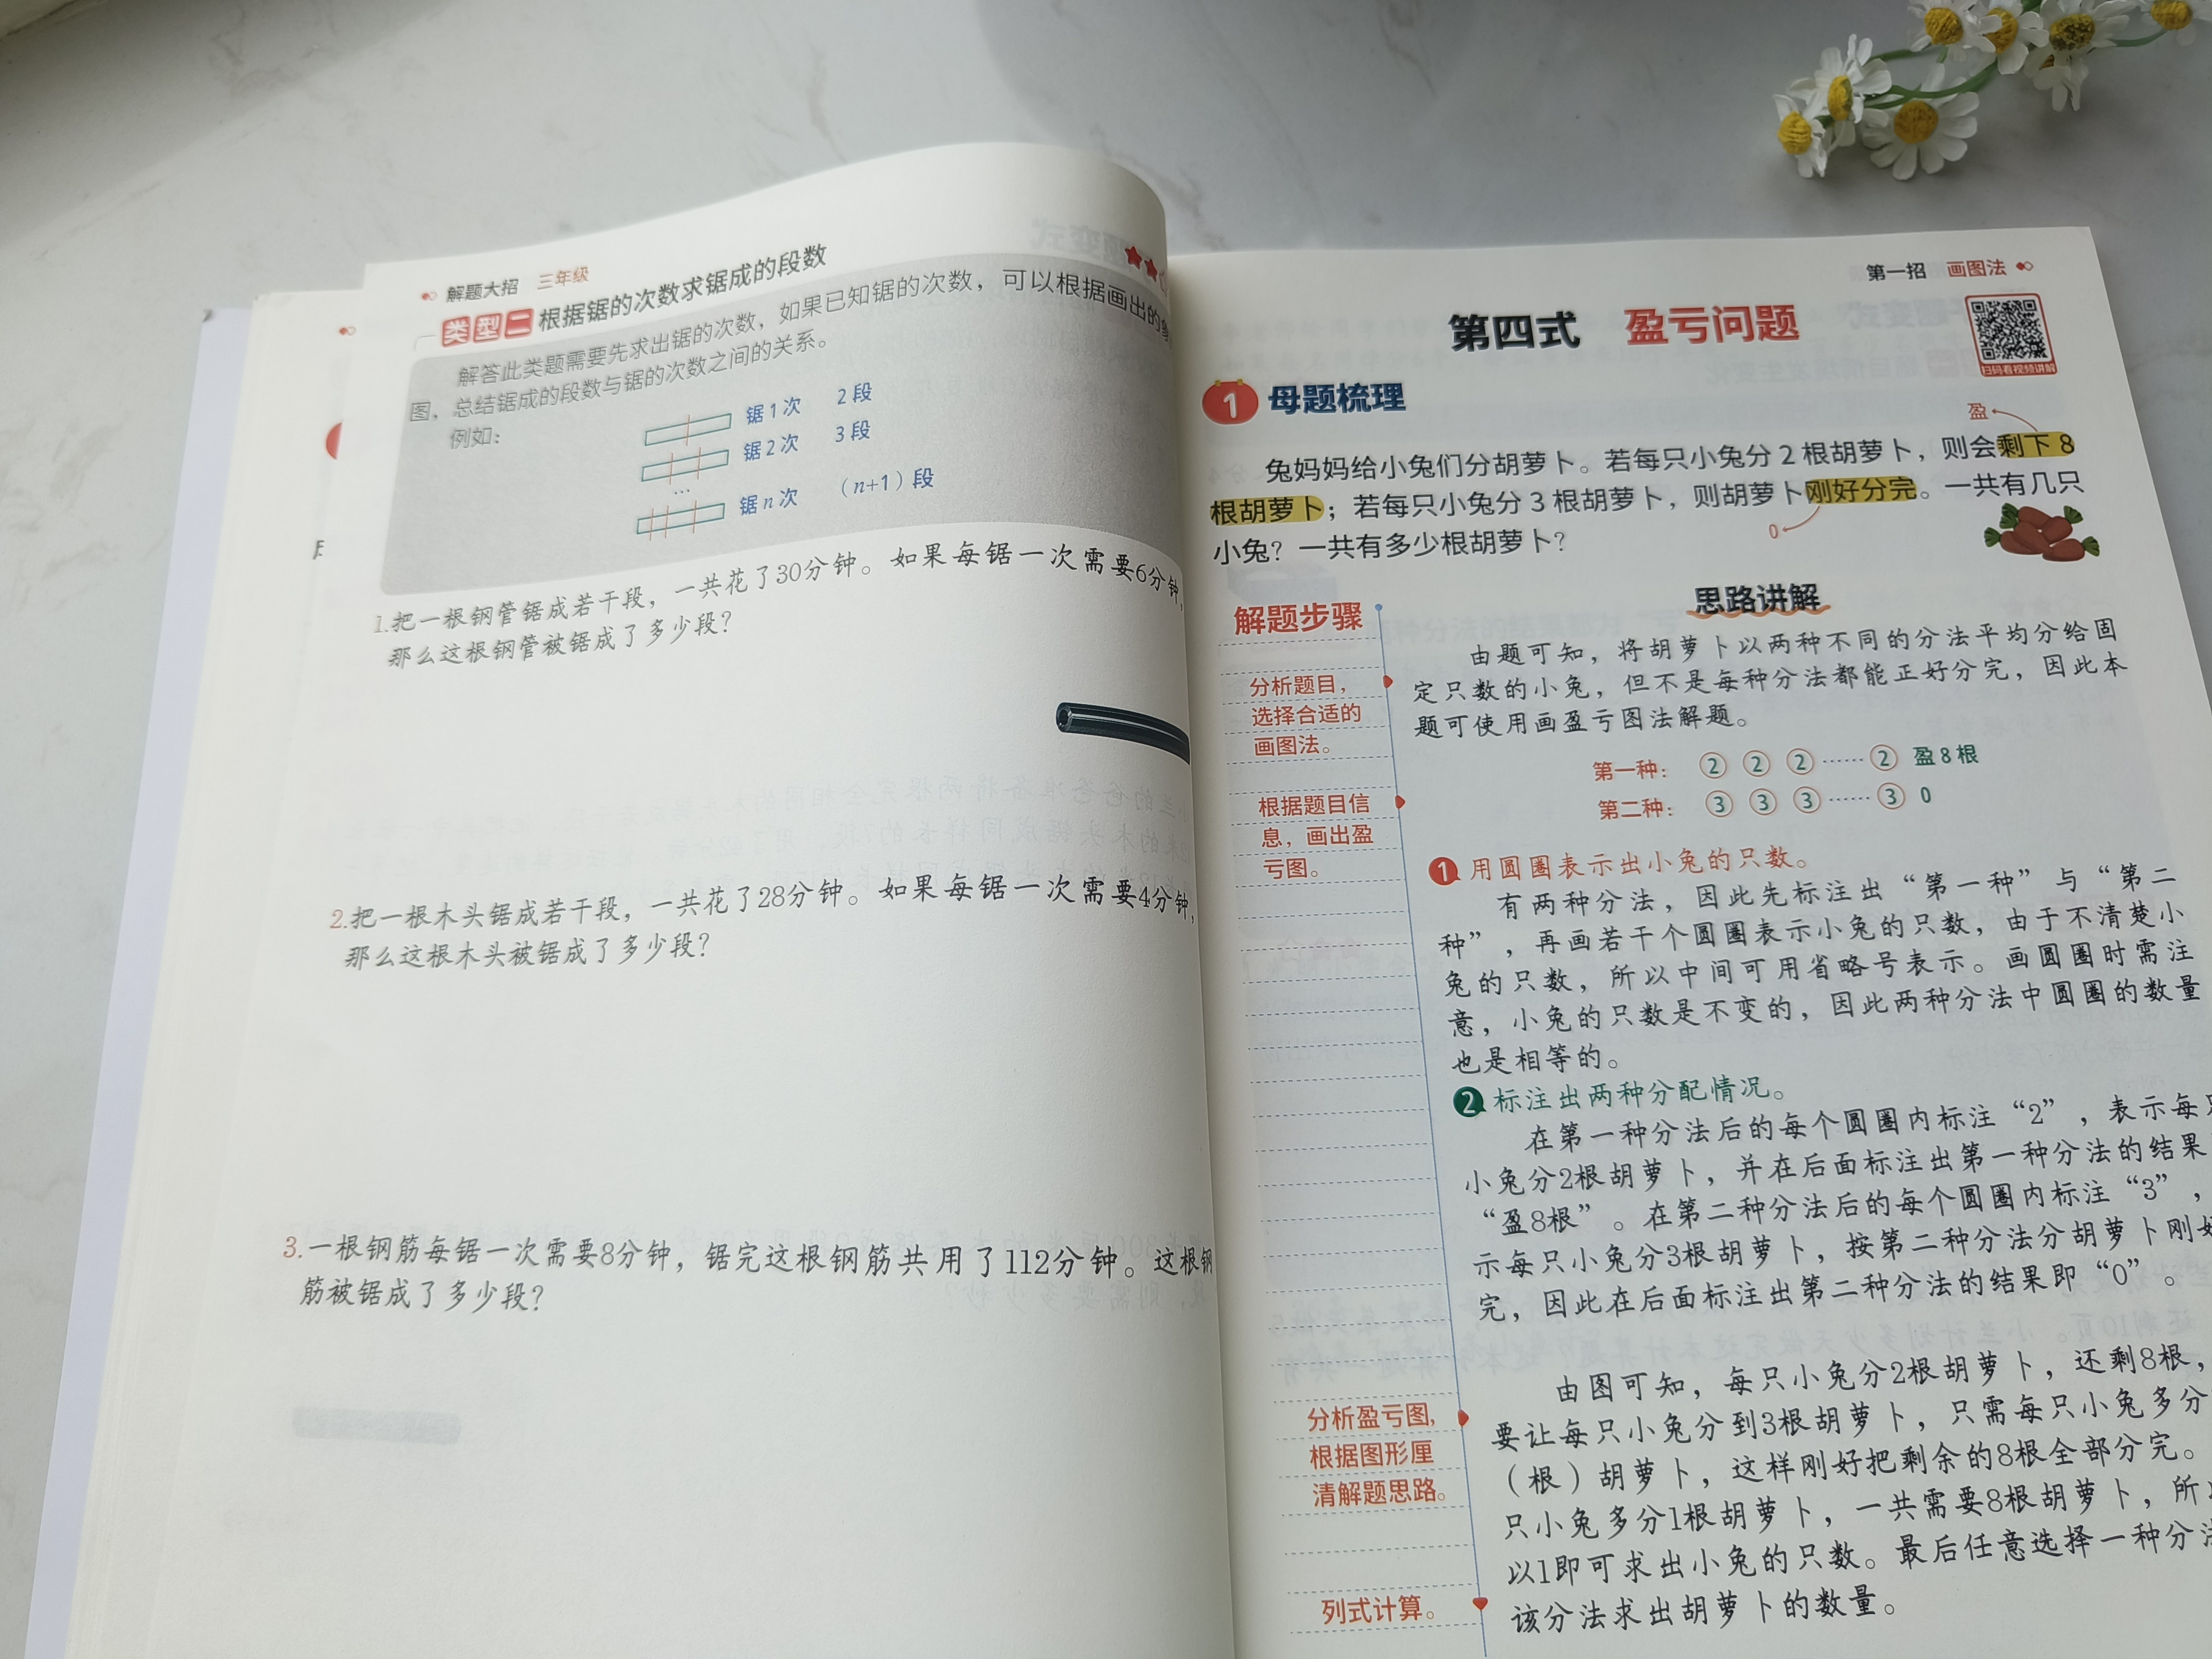 解题大招 三年级
类型二 根据锯的次数求锯成的段数
解答此类题需要先求出锯的次数，如果已知锯的次数，可以根据画出的
图，总结锯成的段数与锯的次数之间的关系。
例如：
锯1次 2段
锯2次 3段
…
锯n次 （n+1）段
1.把一根钢管锯成若干段，一共花了30分钟。如果每锯一次需要6分钟，
那么这根钢管被锯成了多少段？
2.把一根木头锯成若干段，一共花了28分钟。如果每锯一次需要4分钟，
那么这根木头被锯成了多少段？
3.一根钢筋每锯一次需要8分钟，锯完这根钢筋共用了112分钟。这根钢
筋被锯成了多少段？
第一招 画图法
第四式 盈亏问题
扫码看视频讲解
1 母题梳理
盈
兔妈妈给小兔们分胡萝卜。若每只小兔分2根胡萝卜，则会剩下8
根胡萝卜；若每只小兔分3根胡萝卜，则胡萝卜刚好分完。一共有几只
0
小兔？一共有多少根胡萝卜？
解题步骤
思路讲解
分析题目，
选择合适的
画图法。
由题可知，将胡萝卜以两种不同的分法平均分给固
定只数的小兔，但不是每种分法都能正好分完，因此本
题可使用画盈亏图法解题。
根据题目信
息，画出盈
亏图。
第一种： ② ② ② …… ② 盈8根
第二种： ③ ③ ③ …… ③ 0
1 用圆圈表示出小兔的只数。
有两种分法，因此先标注出“第一种”与“第二
种”，再画若干个圆圈表示小兔的只数，由于不清楚小
兔的只数，所以中间可用省略号表示。画圆圈时需注
意，小兔的只数是不变的，因此两种分法中圆圈的数量
也是相等的。
2 标注出两种分配情况。
在第一种分法后的每个圆圈内标注“2”，表示每只
小兔分2根胡萝卜，并在后面标注出第一种分法的结果
“盈8根”。在第二种分法后的每个圆圈内标注“3”，
示每只小兔分3根胡萝卜，按第二种分法分胡萝卜刚好
完，因此在后面标注出第二种分法的结果即“0”。
分析盈亏图，
根据图形厘
清解题思路。
由图可知，每只小兔分2根胡萝卜，还剩8根，
要让每只小兔分到3根胡萝卜，只需每只小兔多分
（根）胡萝卜，这样刚好把剩余的8根全部分完。
只小兔多分1根胡萝卜，一共需要8根胡萝卜，所
以1即可求出小兔的只数。最后任意选择一种分法
该分法求出胡萝卜的数量。
列式计算。